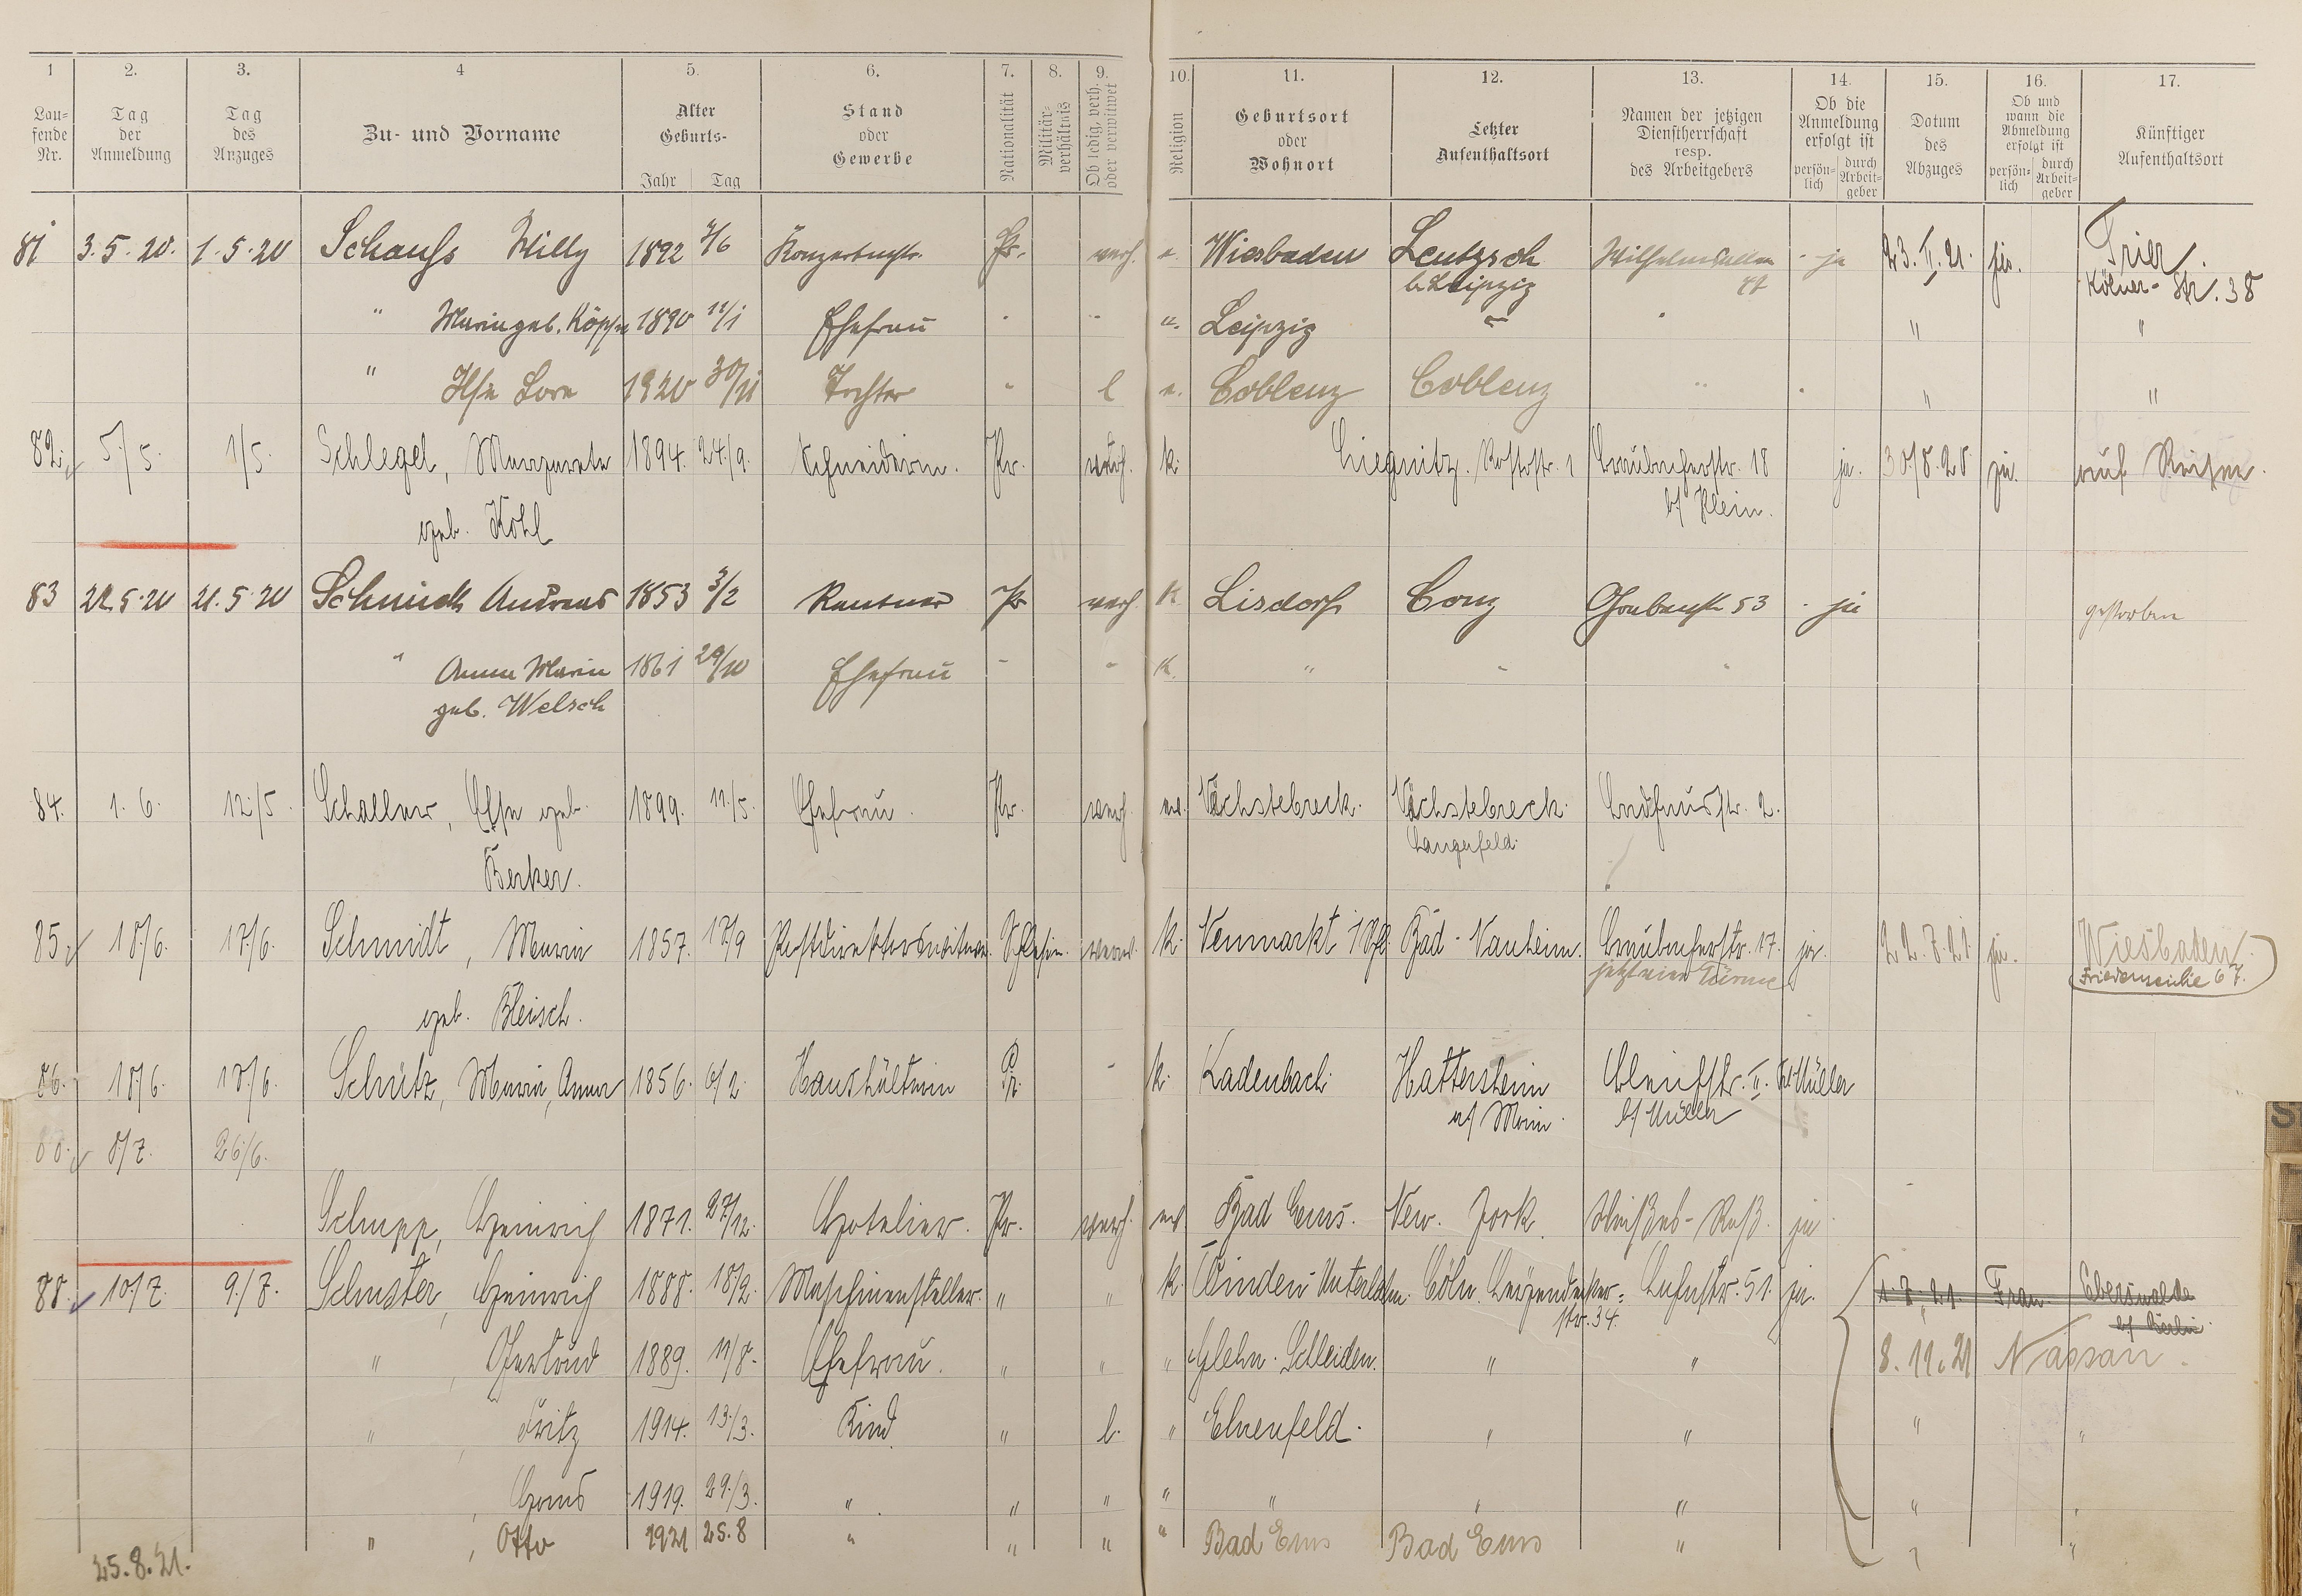 1 2. 3. 4 5. 6. 7. 8. 9. 10. 11. 12. 13. 14. 15. 16. 17.
Lau-
fende
Nr.
Tag
der
Anmeldung
Tag
des
Anzuges
Zu- und Vorname
Alter
Geburts-
Jahr Tag
Stand
oder
Gewerbe
Nationalität
Militär-
verhältnis
Ob ledig, verh.
oder verwitwet
Religion
Geburtsort
oder
Wohnort
Letzter
Aufenthaltsort
Namen der jetzigen
Dienstherrschaft
resp.
des Arbeitgebers
Ob die
Anmeldung
erfolgt ist
persön-
lich
durch
Arbeit-
geber
Datum
des
Abzuges
Ob und
wann die
Abmeldung
erfolgt ist
persön-
lich
durch
Arbeit-
geber
Künftiger
Aufenthaltsort
81 3.5.20. 1.5.20 Schauss Willy 1892 Pr. verh. e. Wiesbaden Leutzsch ja 23. II. 21. ja. Trier.
b. Leipzig Kölner-Str. 38
" Marie geb. 1890 11/1 Ehefrau " " e. Leipzig " " " "
" Ilse Lore 1920 Tochter " l e. Coblenz Coblenz " " "
82. 5/5. 1/5. Schlegel, Margareta 1894. 24./9. Schneiderin. Pr. verh. k. Liegnitz. 1 Braubacherstr. 18 ja. 30/8.20 ja. auf Reisen.
geb. Kohl b/ Klein.
83 22.5.20 21.5.20 Schmidt Andreas 1853 3/2 Rentner Pr verh. K Lisdorf Conz Grabenstr 53 ja gestorben
" Anna Maria 1861 29/10 Ehefrau " " K. " " "
geb. Welsch
84. 1.6. 12./5. Schaller, Else geb. 1899. 11./5. Ehefrau. Pr. verh. ev. Vächstebreck. Vächstebreck. 2.
Berker. Langerfeld.
85. 18/6. 17./6. Schmidt, Maria 1857. 17./9 Postdirektorswitwe. verw. k. Neumarkt Bad-Nauheim. Braubacherstr. 17. ja. 22.7.21 ja. Wiesbaden.
jetzt vier Türme Friedenseiche 67.
geb. Bleisch.
86. 18/6. 18/6. Schütz, Maria, Anna 1856. 6/2. Haushälterin Pr. " k. Kadenbach Hattersheim II. Müller
a/ Main b/ Müller
8/7. 26/6.
Schupp, Heinrich 1871. 27/12. Hotelier. Pr. verh. ev. Bad Ems. New. York. ja
88. 10/7. 9./7. Schuster, Heinrich 1888. 18/2. Maschinensteller. " " k. Cöln. 51. ja. 1.7.21. Frau. Eberswalde
str. 34. b/ Berlin.
" , Gertrud 1889. 11/8. Ehefrau. " " " Glehn. Schleiden. " " 8.11.21 Nassau.
" , Fritz 1914. 13./3. Kind " l. " Ehrenfeld. " " " "
, Hans 1919. 29./3. " " " " " " " " "
" , Otto 1921 25.8 " " " " Bad Ems Bad Ems " " "
25.8.21.